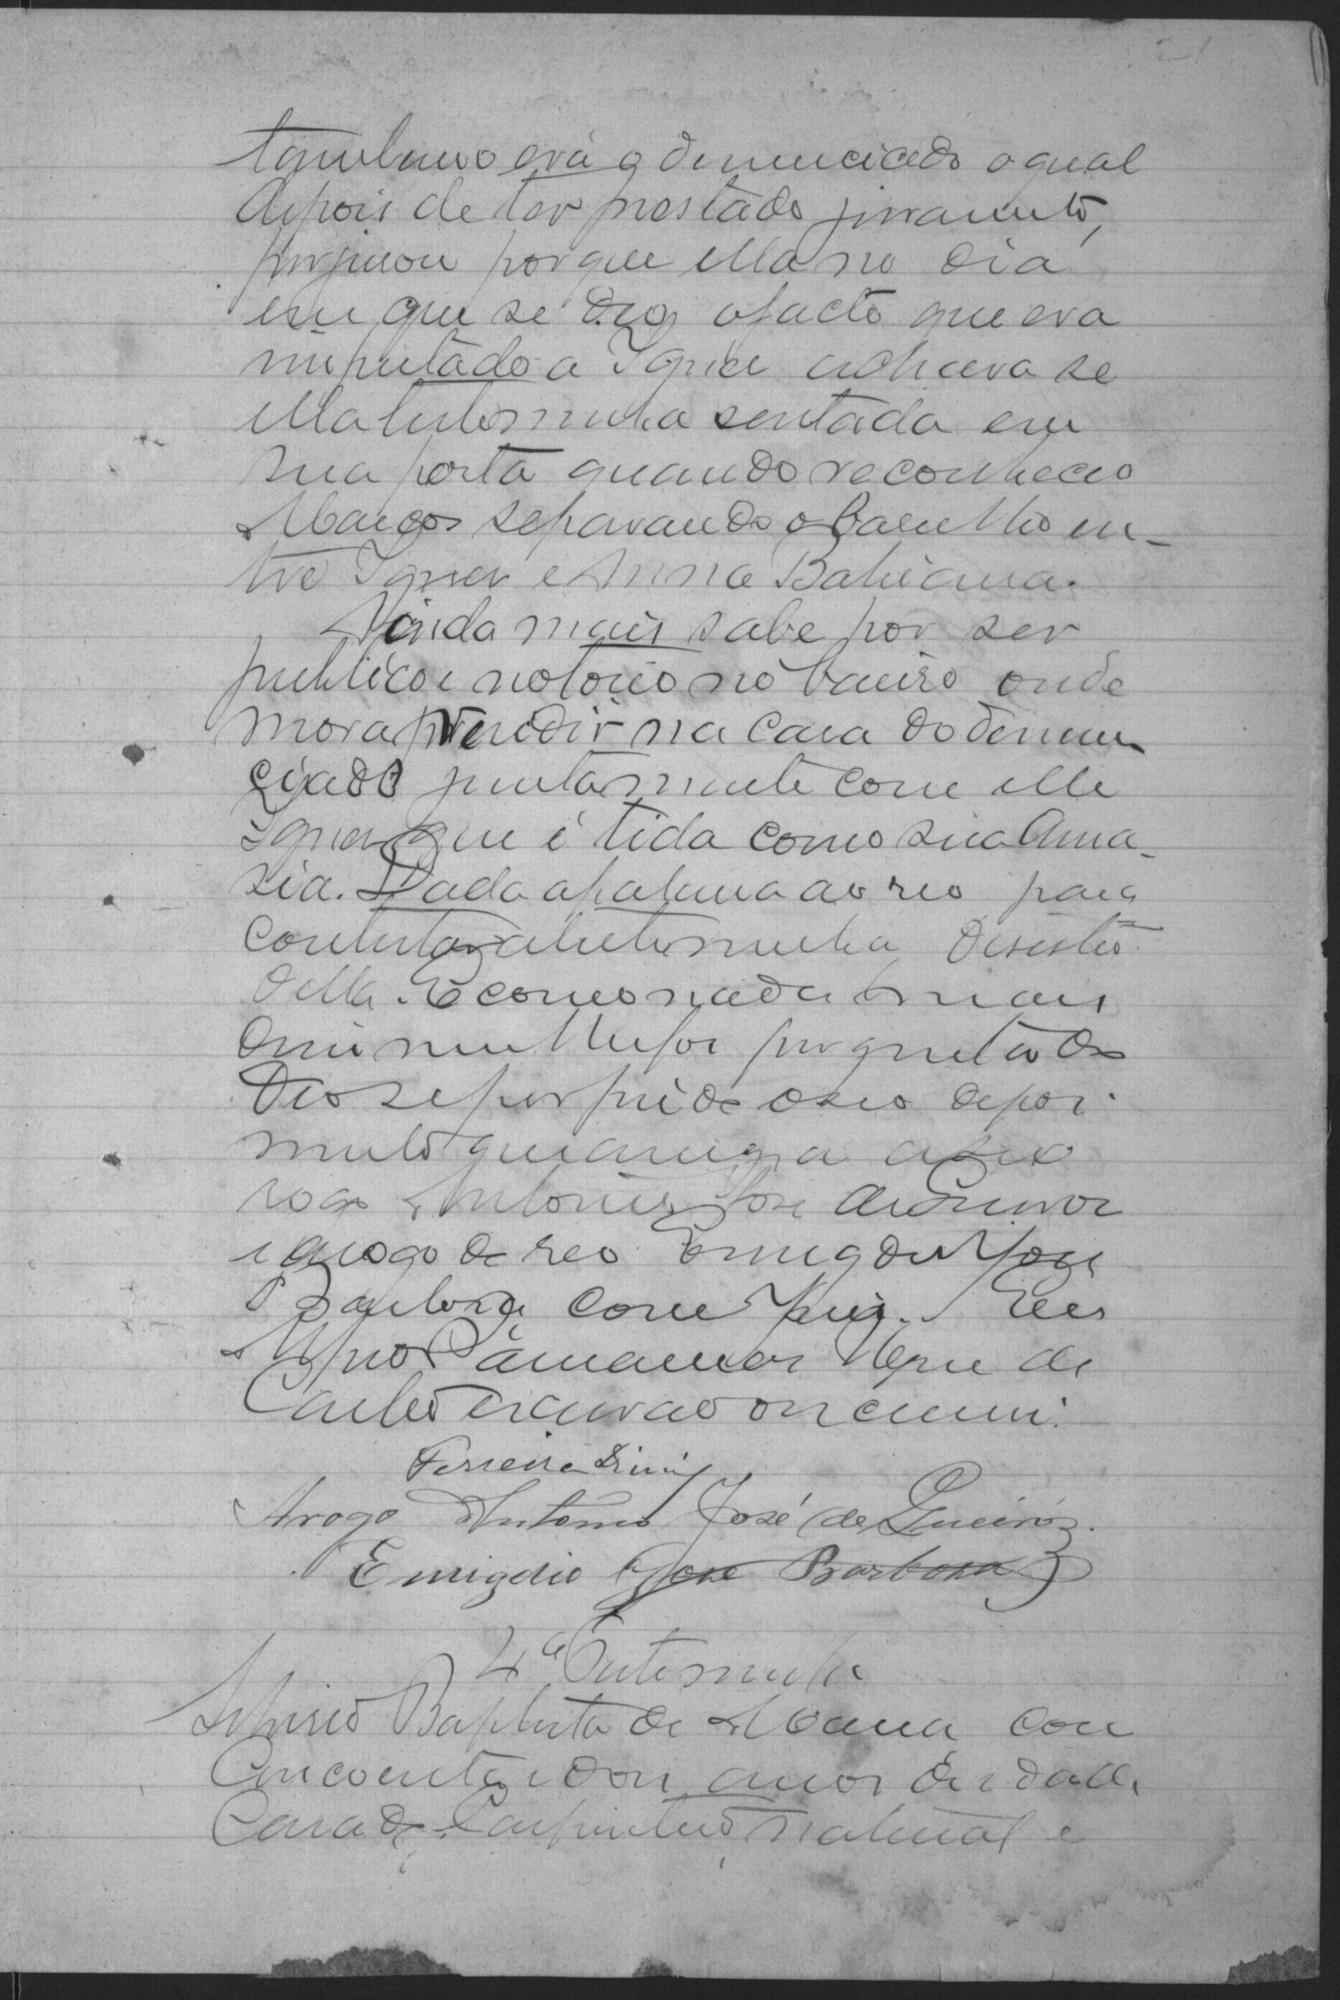 era o denunciado o qual
depois de ter prestado juramento,
porque ella no dia
em que se deo o facto que era
imputado a Ignez achava se
ella testemunha sentada em
sua porta quando reconheceo
Marcos separando o barulho en-
tre Ignez e Anna Bahiana.
Ainda mais sabe por ser
publico e notorio no bairro onde
mora residir na casa do denun
ciado juntamente com elle
Ignez que é tida como sua ama-
sia. Dada a palavra ao reo para
contestar a testemunha desistio
della. E como nada mais
disse nem lhe foi perguntado
deo se por findo o seo depoi
mento que assigna a seo
rogo Antonio José de Queiroz
e a rogo do reo Emigdio José
Barbosa com o Juiz. Eu
de
Castro escrivão o escrevi.
Ferreira
A rogo Antonio José de Queiroz.
Emigdio José Barbosa
4ª Testemunha
Baptista de com
Cincoenta e dois annos de idade
Casado Carpinteiro natural e